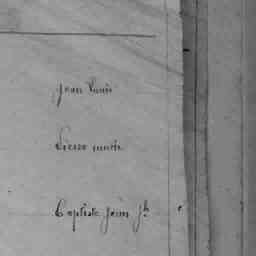 Jean Louis
Pierre marie
Baptiste Jean Jh